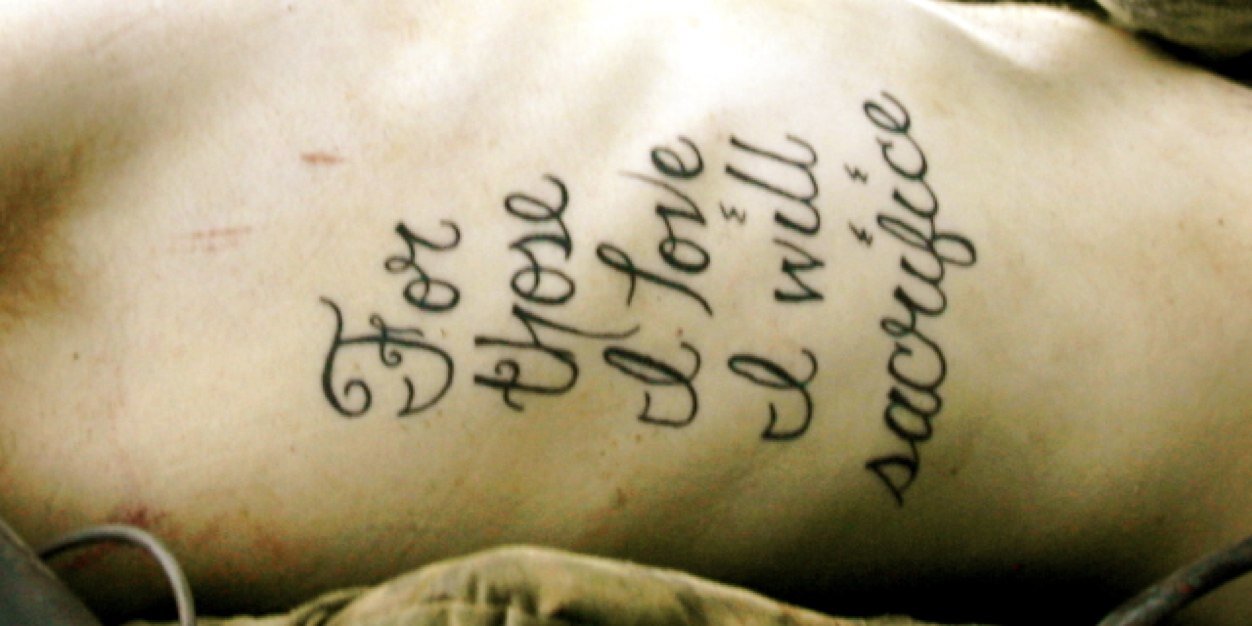 For
those
I love
I will
sacrifice